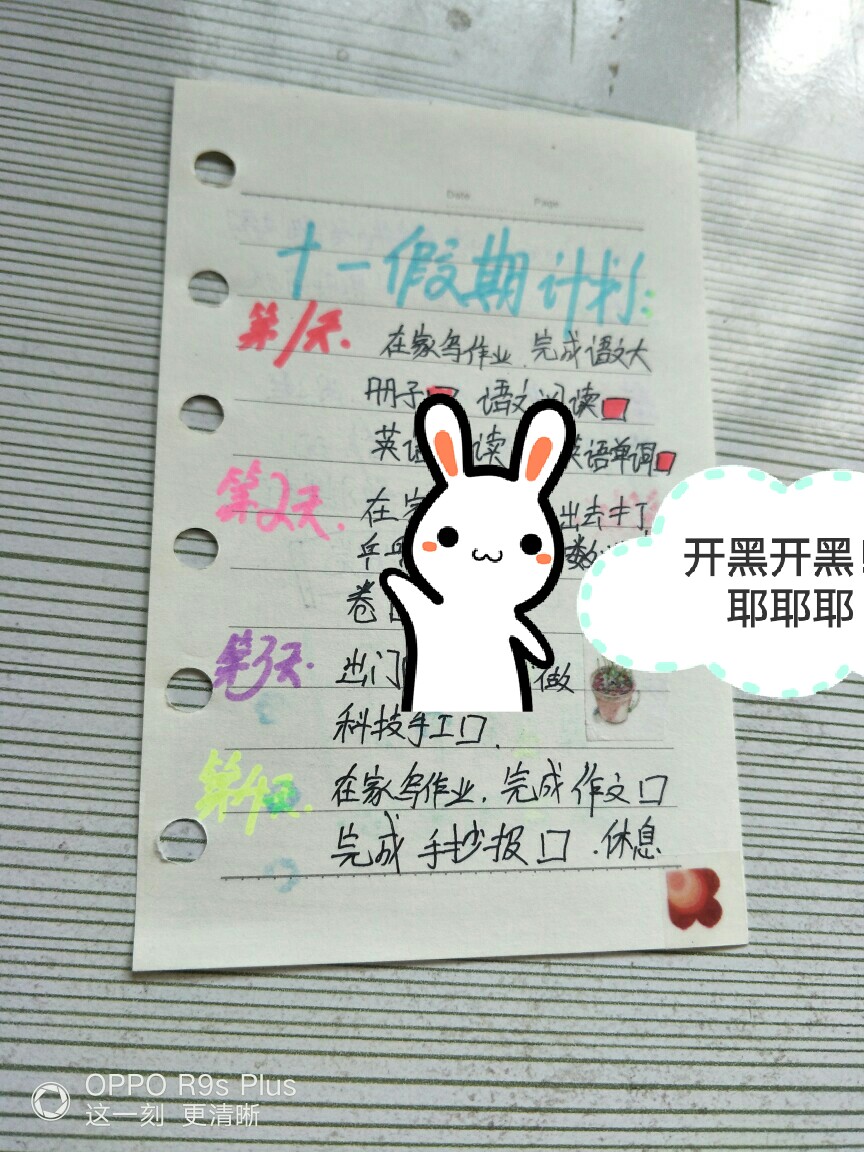 Date Page
十一假期计划:
第1天. 在家写作业,完成语文大
册子 语文阅读
英语 读 英语单词
第2天. 在家 出去打
乒乓 数
卷
第3天. 出门 做
科技手工口.
第4天. 在家写作业,完成作文口
完成手抄报口.休息
开黑开黑!
耶耶耶
OPPO R9s Plus
这一刻 更清晰